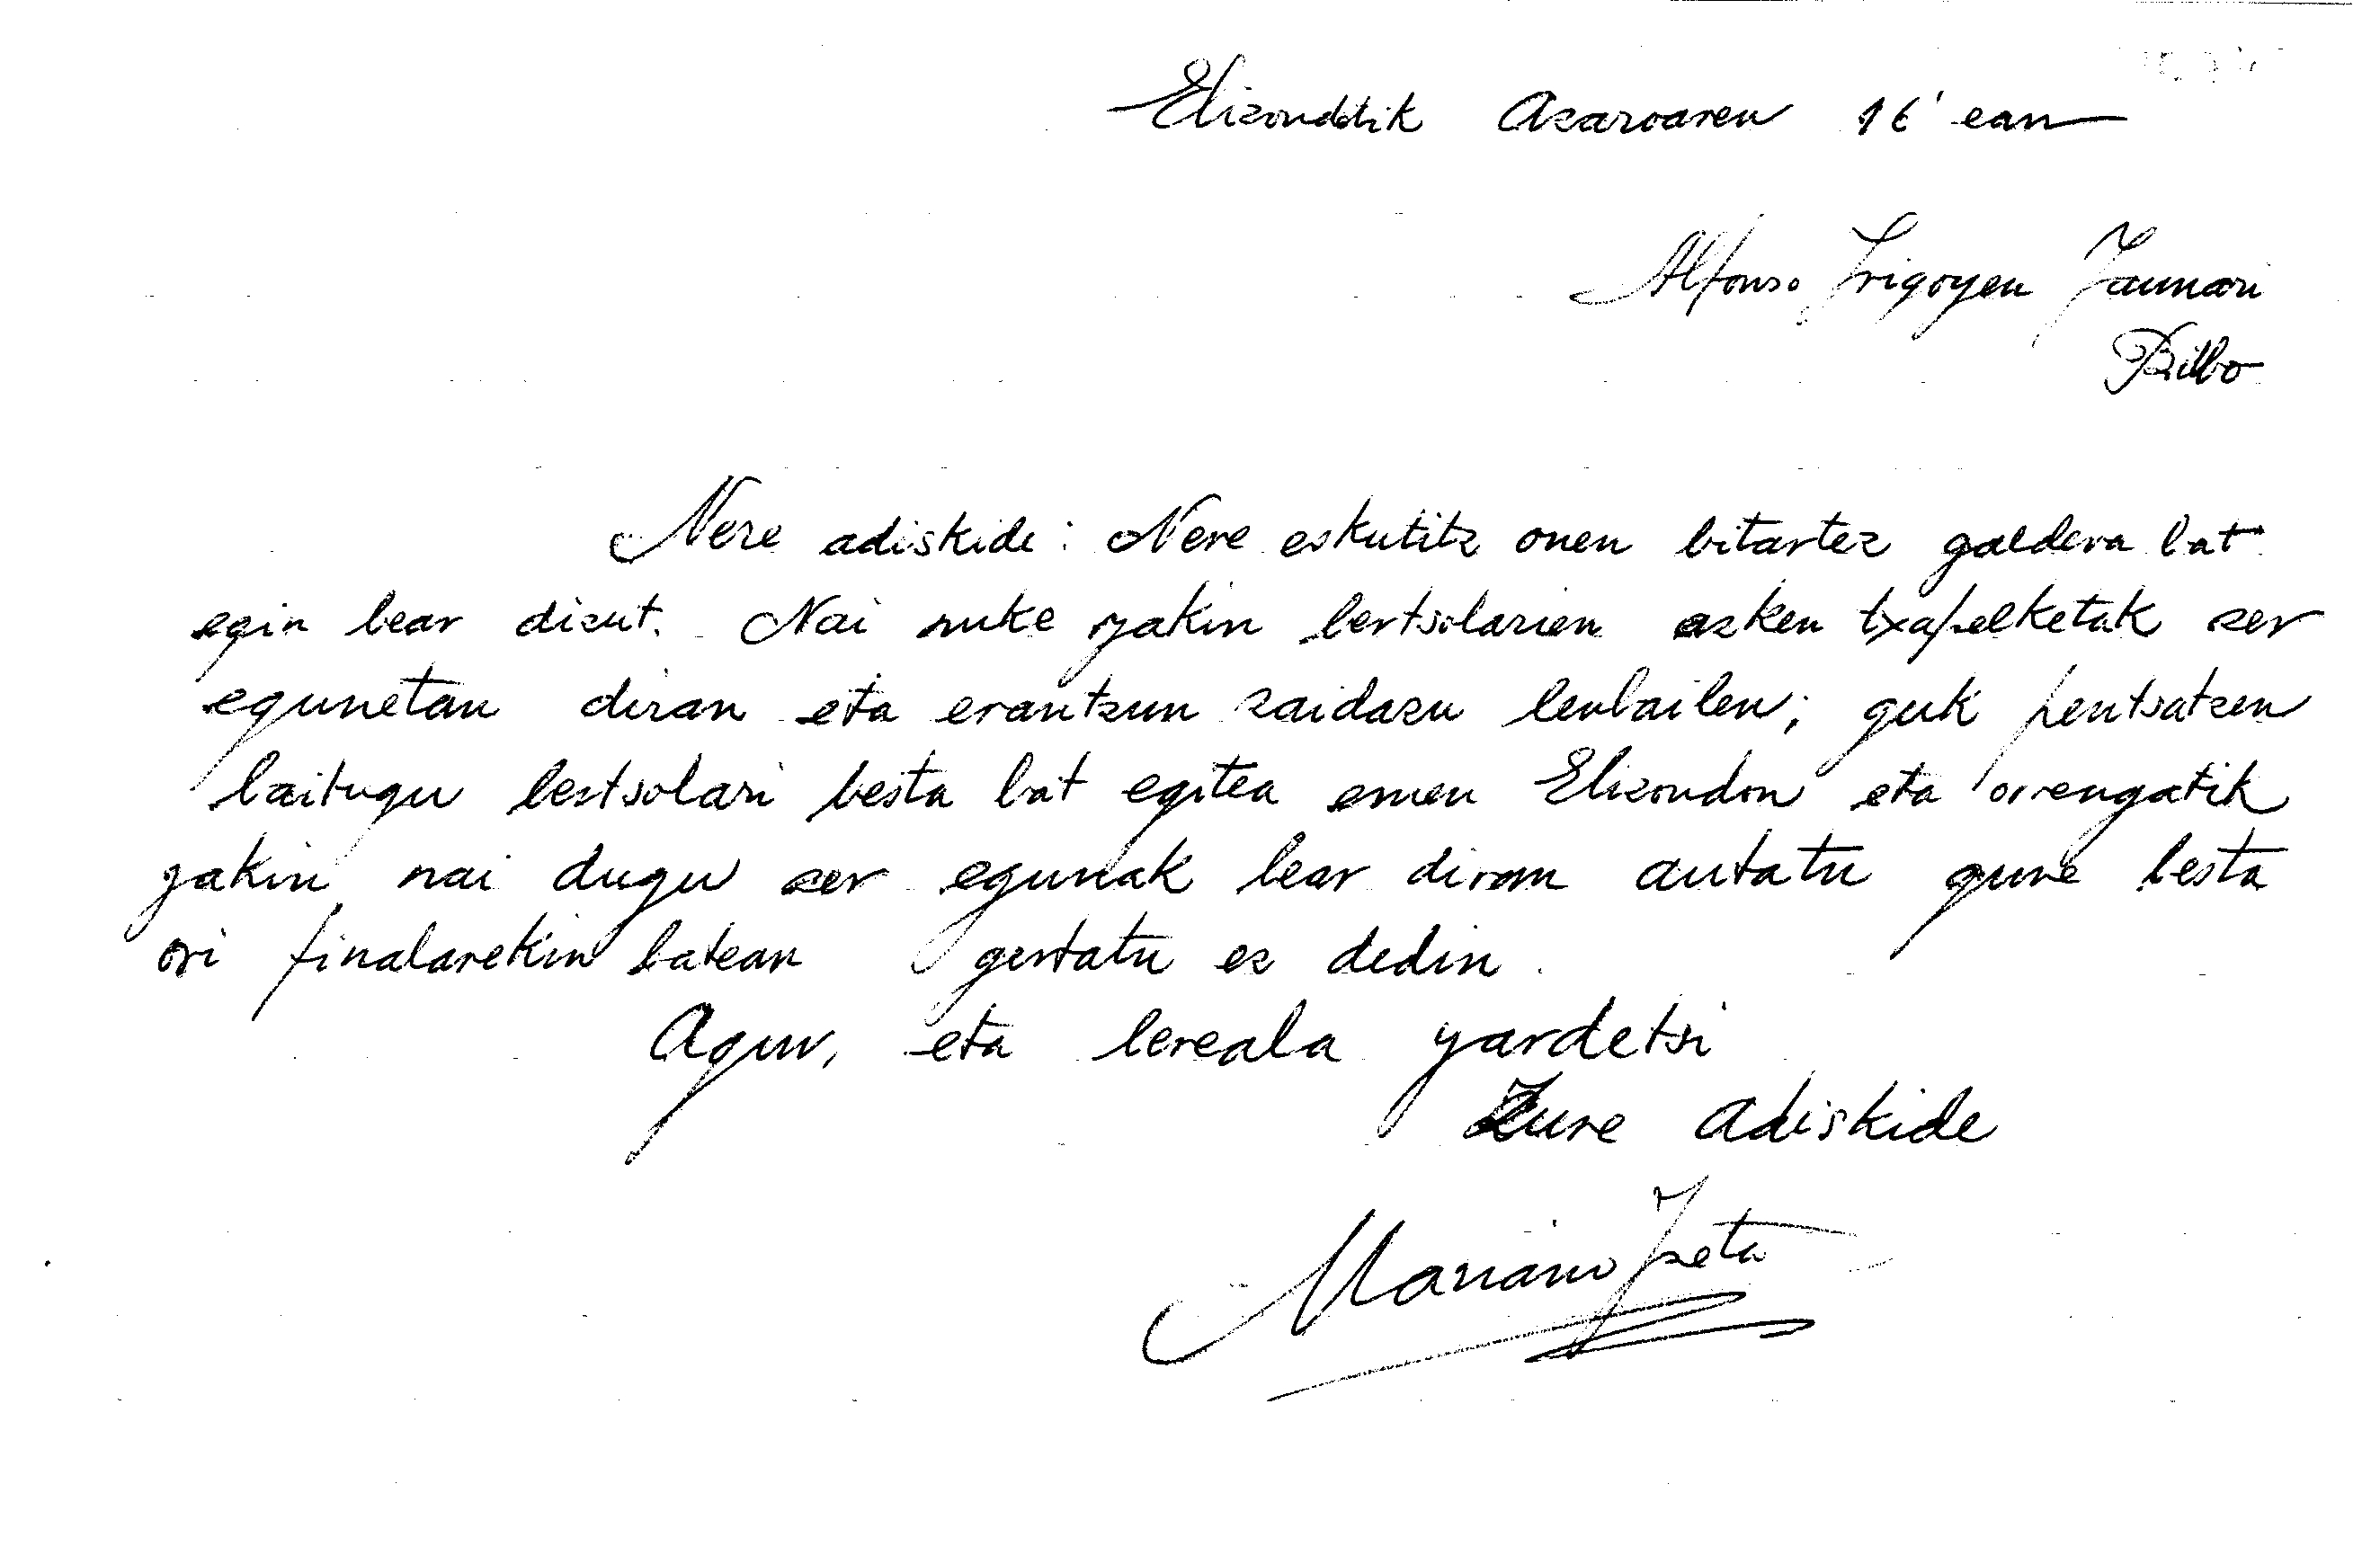 Elizondotik Azaroaren 16'ean
Alfonso Irigoyen Jaunari
Bilbo
Nere adiskide: Nere eskutitz onen bitartez galdera bat
egin bear dizut. Nai nuke yakin bertsolarien azken txapelketak zer
egunetan diran eta erantzun zaidazu lenbailen; guk pentsatzen
baitugu bertsolari besta bat egitea emen Elizondon eta orrengatik
yakin nai dugu zer egunak bear diran autatu gure besta
ori finalarekin batean gertatu ez dedin.
Agur, eta bereala yardetsi
Zure adiskide
Mariano Izeta